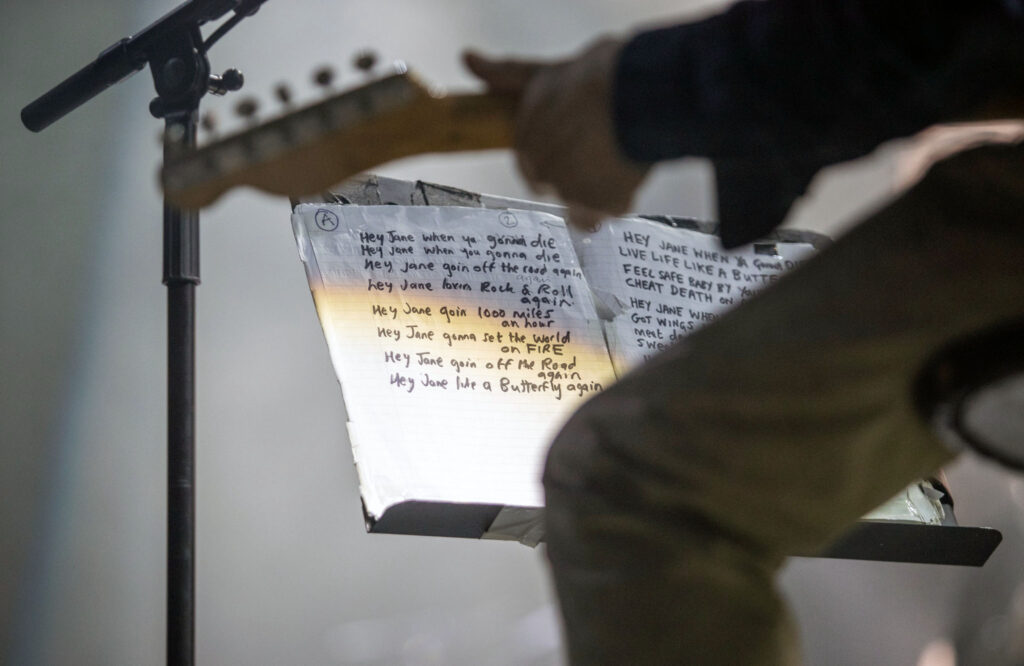 A
2
Hey Jane when ya gonna die
Hey Jane when you gonna die
Hey Jane goin off the road again
again
Hey Jane lovin Rock & Roll
again
Hey Jane goin 1000 miles
an hour
Hey Jane gonna set the World
on FIRE
Hey Jane goin off the Road
again
Hey Jane like a Butterfly again
HEY JANE WHEN YA GONNA
LIVE LIFE LIKE A
FEEL SAFE BABY BY
CHEAT DEATH ON
HEY JANE WHEN
GOT WINGS
meat